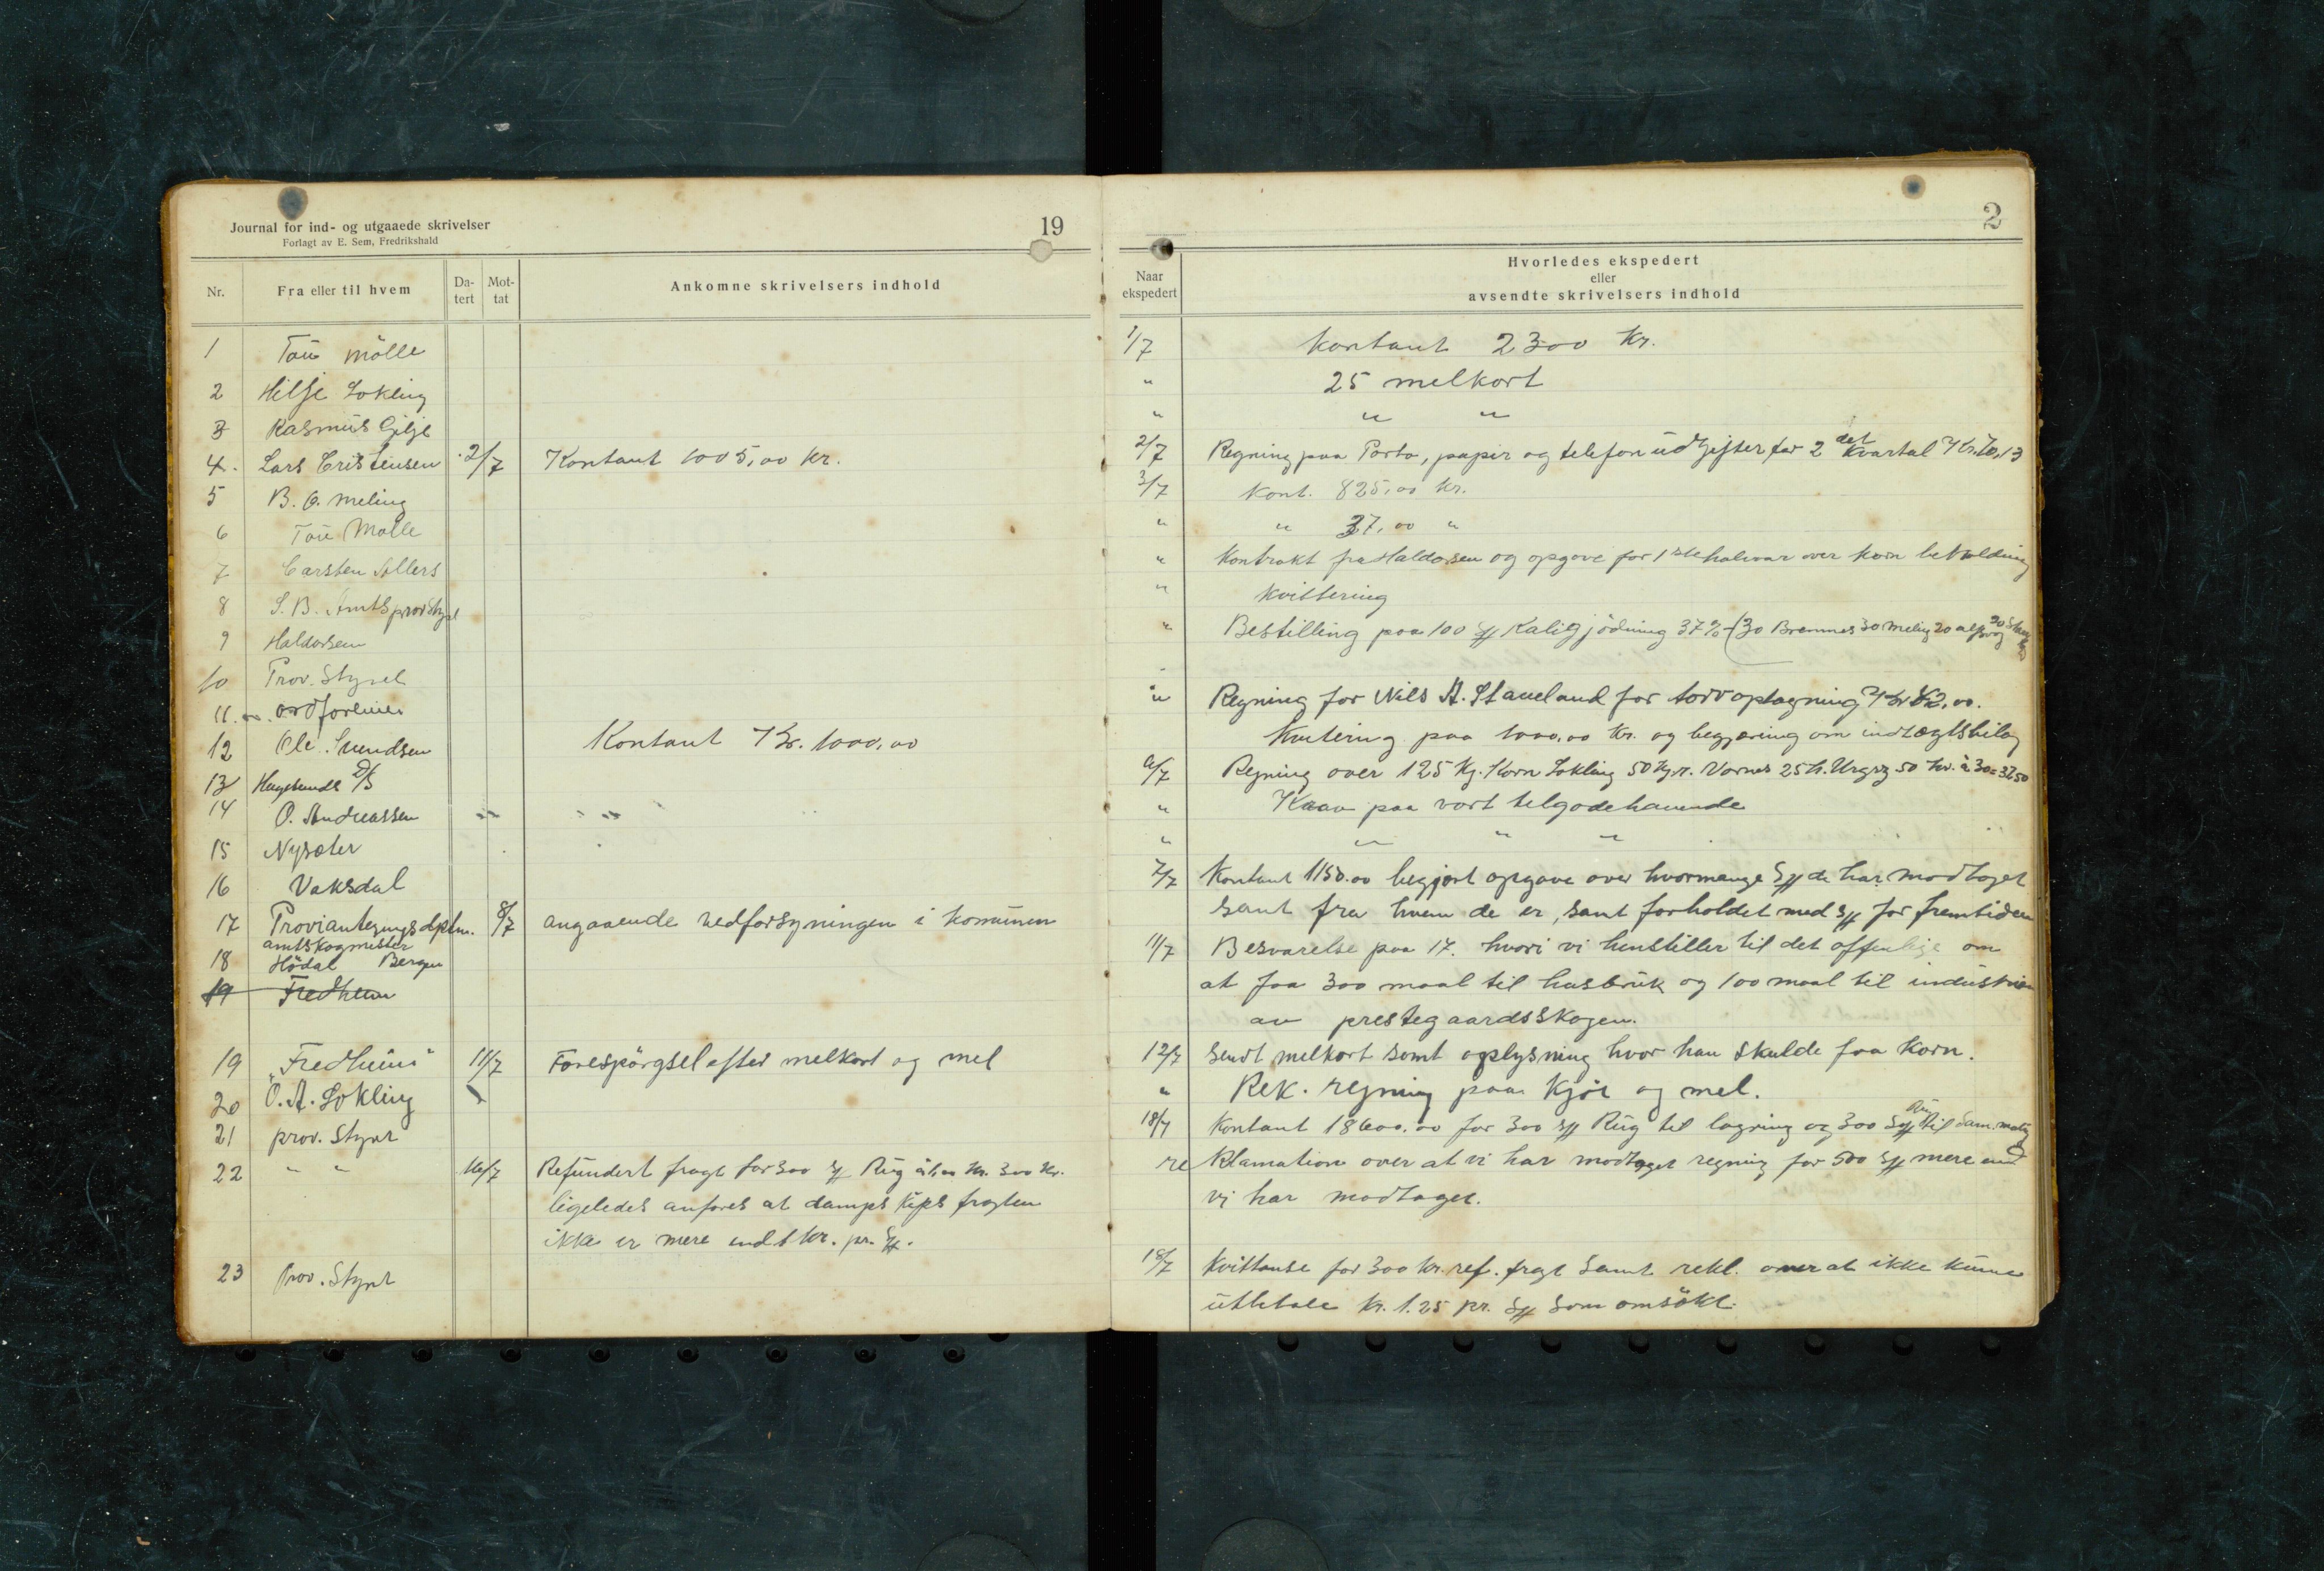 Journal for ind- og utgaaede skrivelser
Forlagt av E. Sem, Fredrikshald
19
Nr. Fra eller til hvem Da-tert Mot-tat Ankomne skrivelsers indhold
1 Tau mölle
2 Hilje Lokling
3 Rasmus Gilje
4. Lars Cristensen 2/7 Kontant 1005,00 kr.
5 B. O. Meling
6 Tau Mølle
7 Carsten Sellers
8 S. B. Amtsprovstyrel
9 Haldorsen
10 Prov. Styrel
11. ordförerer
12 Ole Svendsen Kontant Kr. 1000,00
13 Haugesunds D/S
14 O. Andreassen " "
15 Nysæter
16 Vaksdal
17 Provianteringsdptm. 8/7 angaaende vedforsyningen i komunen
amtskogmester
18 Hödal Bergen
19 Fredheim
19 "Fredheim" 11/7 Forespörgsel efter melkort og mel
20 O. A. Lokling
21 prov. Styret
22 " " 16/7 Refundert fragt for 300 Sæ Rug à 1,00 Kr. 300 Kr.
ligeledes anföres at dampskips fragten
ikke er mere end 1 kr. pr. Sæ.
23 Prov. Styret
2
Naar ekspedert
Hvorledes ekspedert
eller
avsendte skrivelsers indhold
1/7 Kontant 2300 Kr.
" 25 melkort
" " "
2/7 Regning paa Porto, papir og telefon udgifter for 2 det Kvartal Kr. 13
3/7 Kont. 825,00 kr.
" " 37,00 "
" Kontrakt fra Haldorsen og opgave for 1ste halvaar over korn beholdning
" Kvittering
" Bestilling paa 100 Sæ Kaligjödning 37% (30 Bremnes 30 Meling 20
" Regning for Nils A. Staveland for torvoptagning Kr 82,00.
Kvitering paa 1000,00 kr. og begjæring om indtægtsbilag
6/7 Regning over 125 Kg. Korn Lokling 50 Kg. Vornes 25 50 à 30 = 37,50
" Krav paa vort tilgodehavende
" " " "
7/7 Kontant 1150.00 begjært opgave over hvormange Sæ de har modtaget
samt fra hvem de er, samt forholdet med Sæ for fremtiden
11/7 Besvarelse paa 17. hvori vi henstiller til det offenlige om
at faa 300 maal til husbruk og 100 maal til industrien
av prestegaardsskogen.
12/7 Sendt melkort samt oplysning hvor han skulde faa Korn.
" Rek. regning paa Kjör og mel.
18/7 Kontant 18600.00 for 300 Sæ Rug til lagring og 300 Sæ Rug til
reklamation over at vi har modtaget regning for 500 Sæ mere end
vi har modtaget.
18/7 Kvittanse for 300 kr. ref. fragt samt rekl. over at ikke kunne
utbetale Kr. 1.25 pr. Sæ som omsökt.